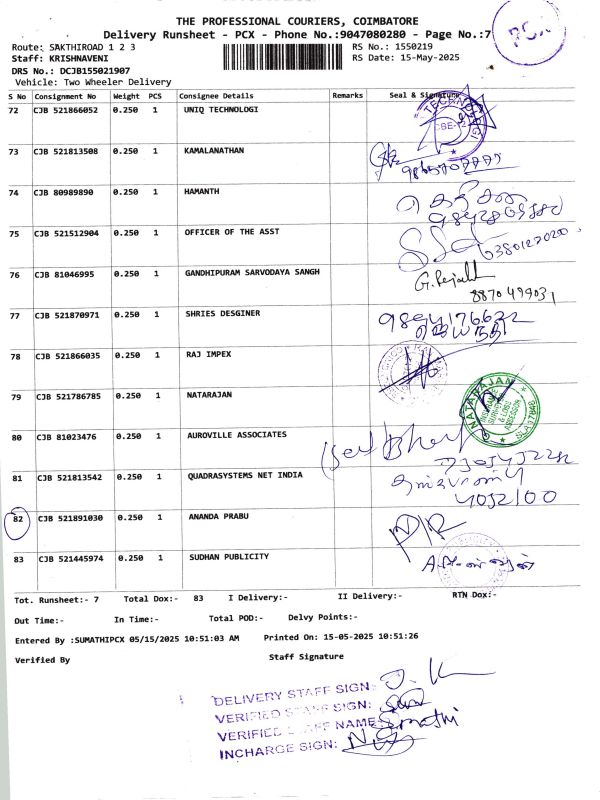 THE PROFESSIONAL COURIERS, COIMBATORE
Delivery Runsheet - PCX - Phone No.:9047080280 - Page No.:7
PCX
Route: SAKTHIROAD 1 2 3
RS No.: 1550219
Staff: KRISHNAVENI
RS Date: 15-May-2025
DRS No.: DCJB155021907
Vehicle: Two Wheeler Delivery
S No Consignment No Weight PCS Consignee Details Remarks Seal & Signature
72 CJB 521866052 0.250 1 UNIQ TECHNOLOGI
73 CJB 521813508 0.250 1 KAMALANATHAN
74 CJB 80989890 0.250 1 HAMANTH
75 CJB 521512904 0.250 1 OFFICER OF THE ASST
76 CJB 81046995 0.250 1 GANDHIPURAM SARVODAYA SANGH
8870499031
77 CJB 521870971 0.250 1 SHRIES DESGINER
9894176632
ஜெயந்தி
78 CJB 521866035 0.250 1 RAJ IMPEX
79 CJB 521786785 0.250 1 NATARAJAN
NATARAJAN
80 CJB 81023476 0.250 1 AUROVILLE ASSOCIATES
81 CJB 521813542 0.250 1 QUADRASYSTEMS NET INDIA
82 CJB 521891030 0.250 1 ANANDA PRABU
83 CJB 521445974 0.250 1 SUDHAN PUBLICITY
Tot. Runsheet:- 7 Total Dox:- 83 I Delivery:- II Delivery:- RTN Dox:-
Out Time:- In Time:- Total POD:- Delvy Points:-
Entered By :SUMATHIPCX 05/15/2025 10:51:03 AM Printed On: 15-05-2025 10:51:26
Verified By Staff Signature
DELIVERY STAFF SIGN:
VERIFIED STAFF SIGN:
VERIFIED STAFF NAME: Sumathi
INCHARGE SIGN: